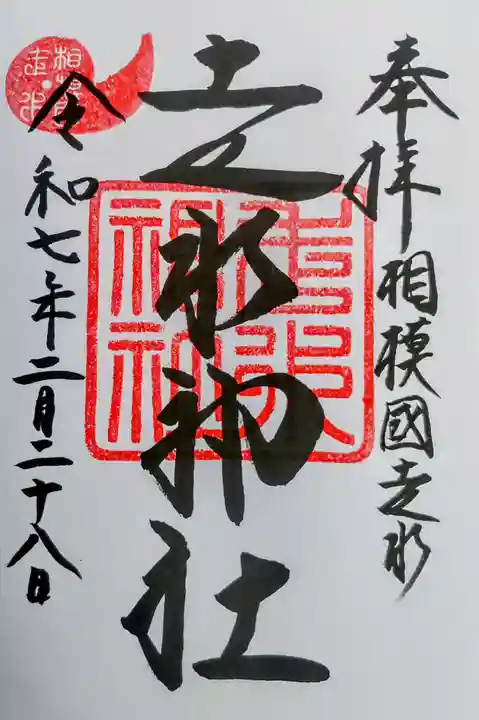 奉拝 相模國走水
走水神社
令和七年二月二十八日
相模
走水